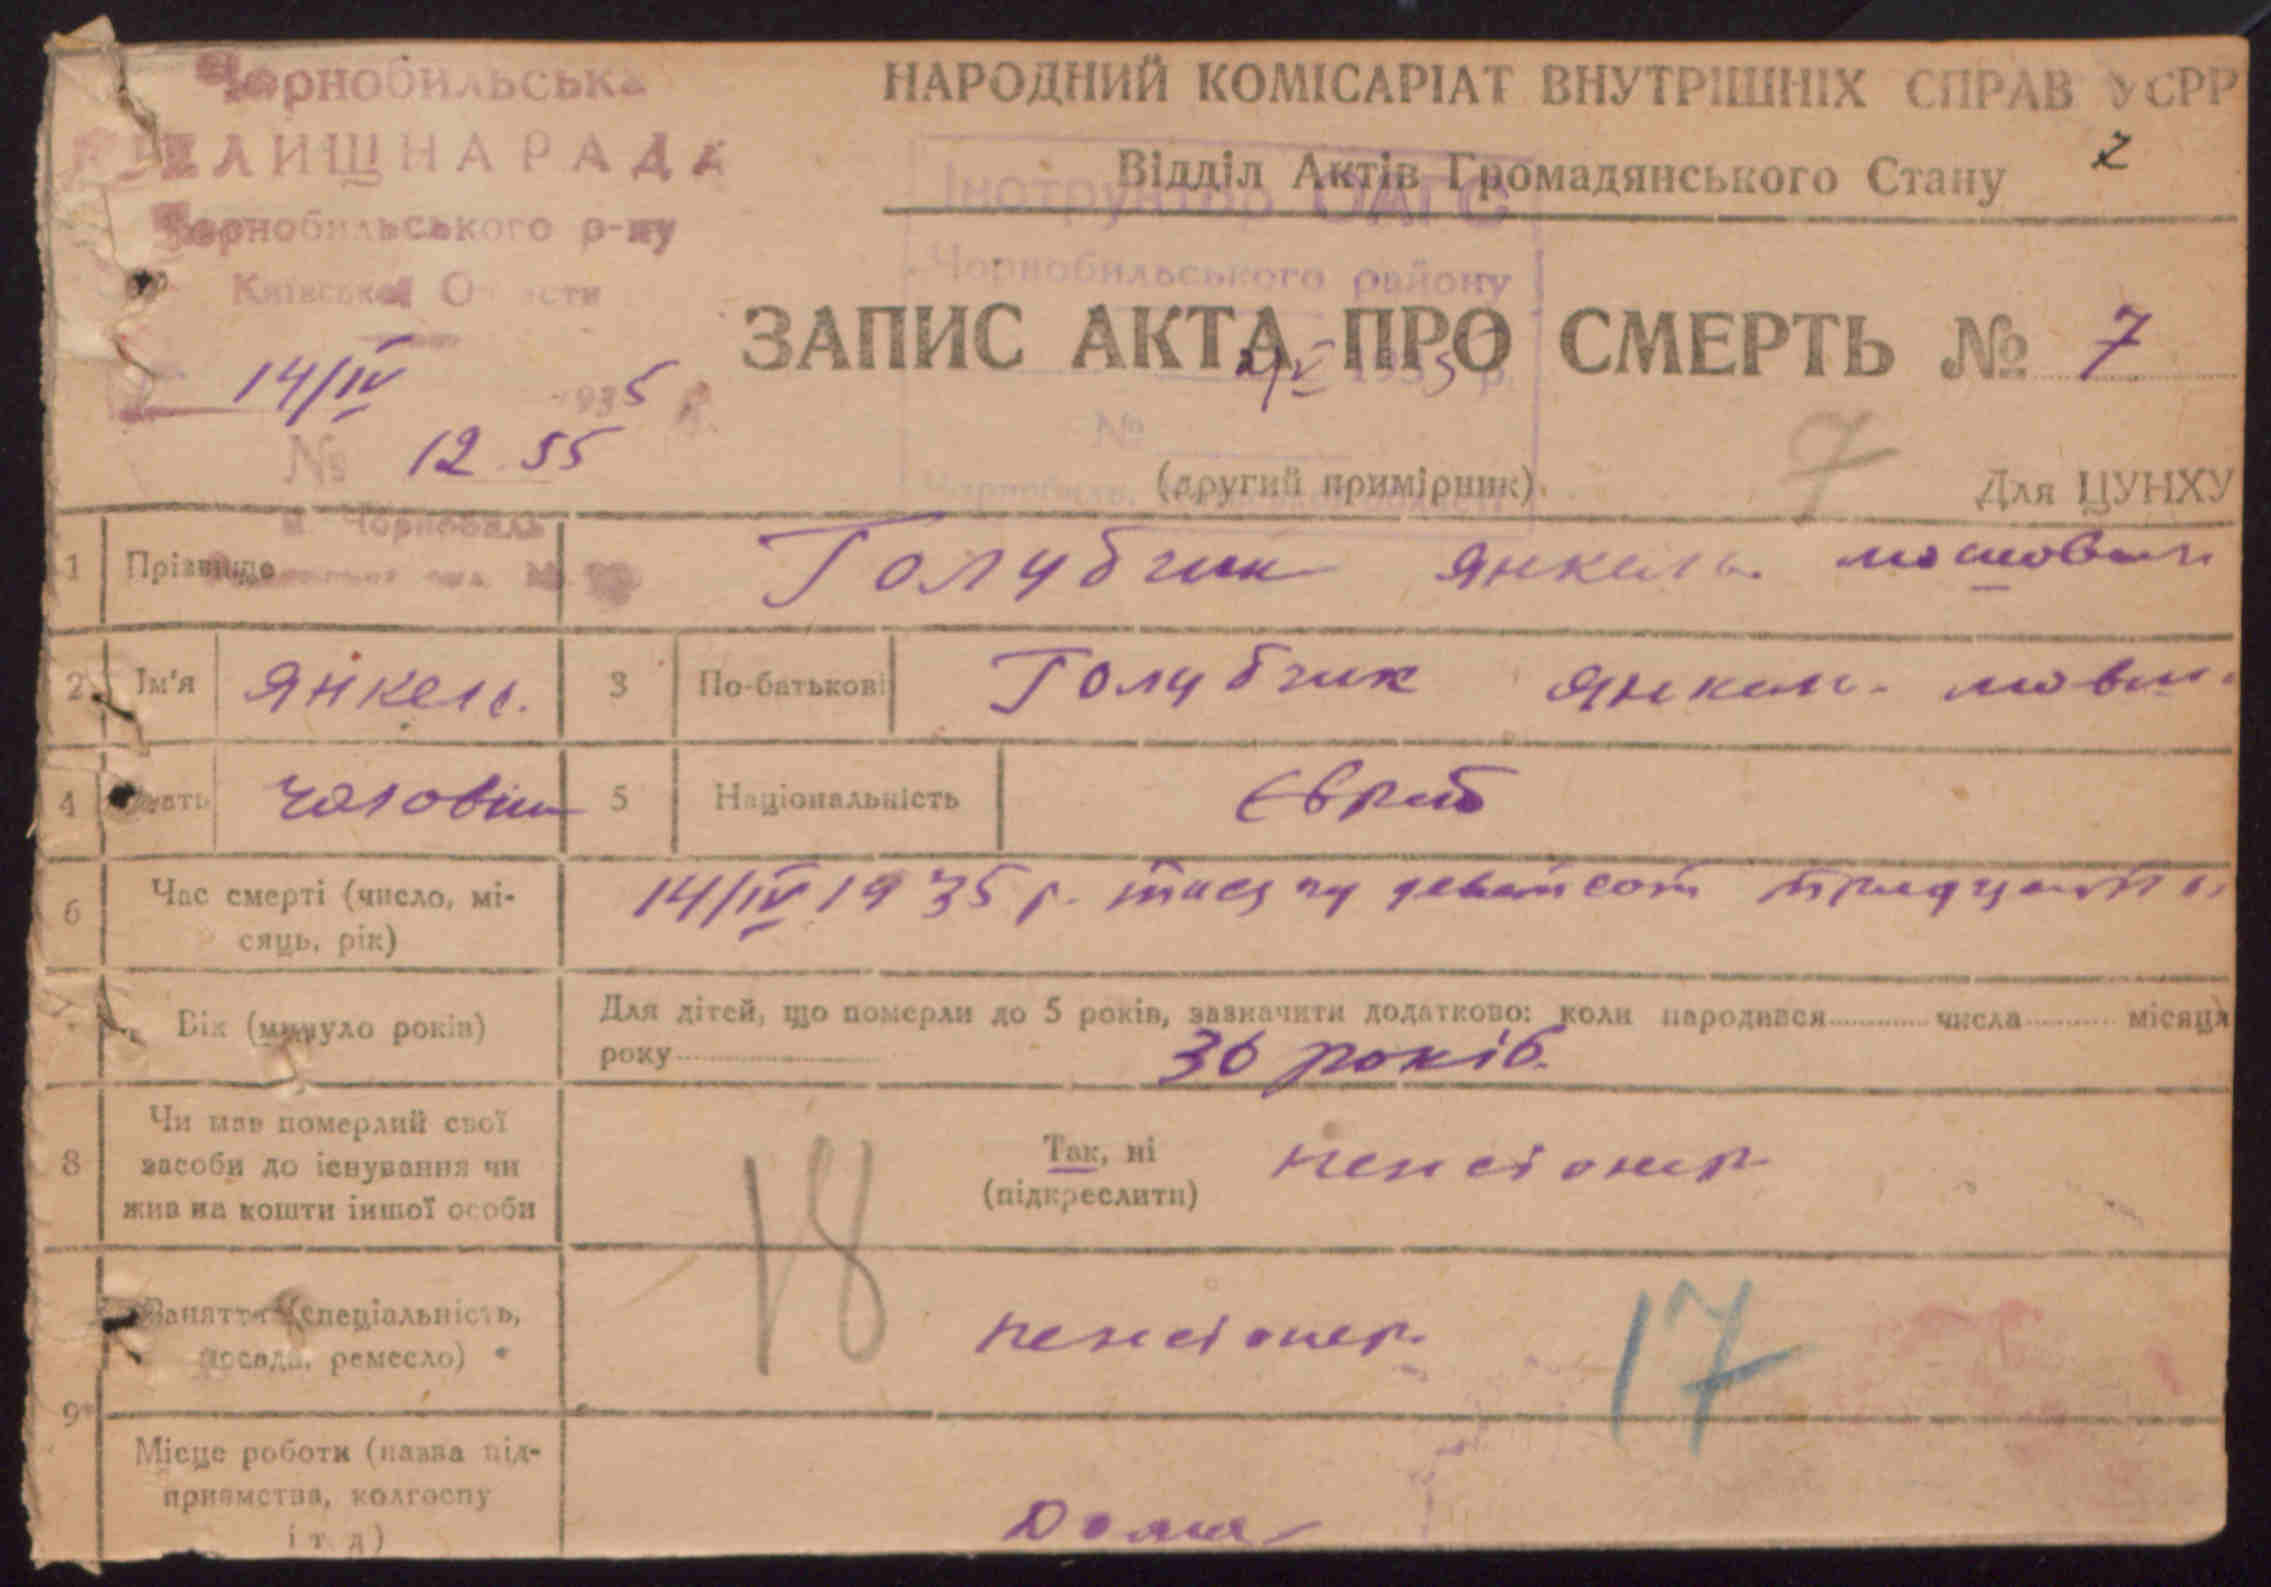 Чорнобильська
СЕЛИЩНА РАДА
Чорнобильського р-ну
Київської Области
14/IV 1935 р.
№ 12.55
м. Чорнобиль
НАРОДНИЙ КОМІСАРІАТ ВНУТРІШНІХ СПРАВ УСРР
Відділ Актів Громадянського Стану
Інструктор ОАГС
Чорнобильського району
ЗАПИС АКТА ПРО СМЕРТЬ № 7
№
(другий примірник)
7
Для ЦУНХУ
1 Прізвище Голубчик Янкель мошович
2 Ім'я Янкель. 3 По-батькові Голубчик Янкель
4 Стать чоловіч 5 Національність Єврей
6 Час смерті (число, мі-
сяць, рік) 14/IV 1935 р. тисячу девятсот тридцять
Вік (минуло років) Для дітей, що померли до 5 років, зазначити додатково: коли народився числа місяця
року 36 років.
8 Чи мав померлий свої
засоби до існування чи
жив на кошти іншої особи
Так, ні
(підкреслити)
пенсіонер
18
9 Заняття (спеціальність,
посада, ремесло) пенсіонер
17
Місце роботи (назва під-
приємства, колгоспу
і т. д)
Дома